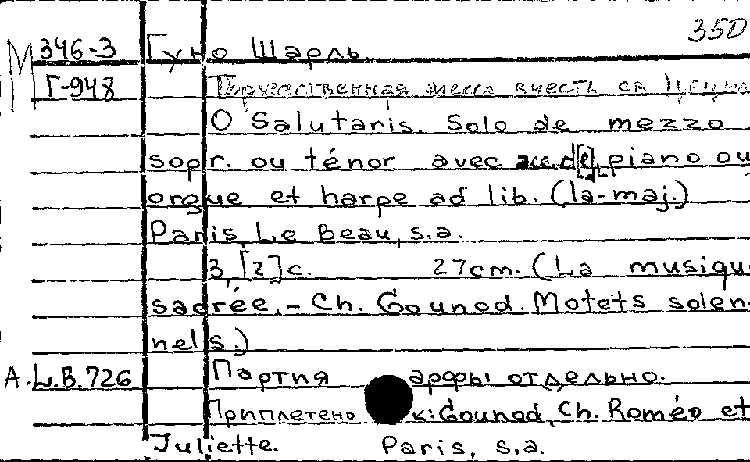 350
М 346-3 Гуно Шарль.
Г-948 Торжественная месса в честь св Цецил
O Salutaris. Solo de mezzo
sopr. ou ténor avec acc. de piano ou
orgue et harpe ad lib. (la-maj.)
Paris, Le Beau, s.a.
3, [2] c. 27cm. (La musiqu
sacrée. - Ch. Gounod. Motets solen-
nels.)
A.L.B.726 Партия арфы отдельно.
Приплетено к: Gounod, Ch. Roméo et
Juliette. Paris, s.a.